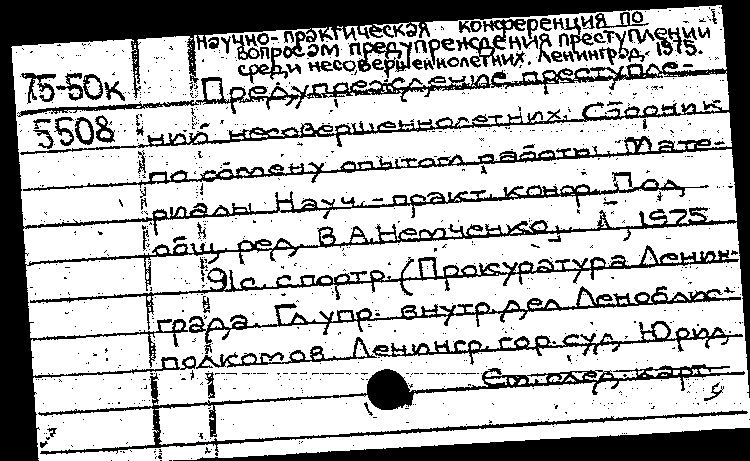 Научно-практическая конференция по
вопросам предупреждения преступлений
среди несовершеннолетних. Ленинград. 1975.
75-50к
Предупреждение преступле-
5508
ний несовершеннолетних. Сборник
по обмену опытом работы. Мате-
риалы Науч.-практ. конф. Под
общ. ред. В.А.Немченко, Л., 1975
91с. с портр. (Прокуратура Ленин-
града. Гл. упр. внутр. дел Леноблис-
полкомов. Ленингр. гор. суд. Юрид.
См. след. карт.